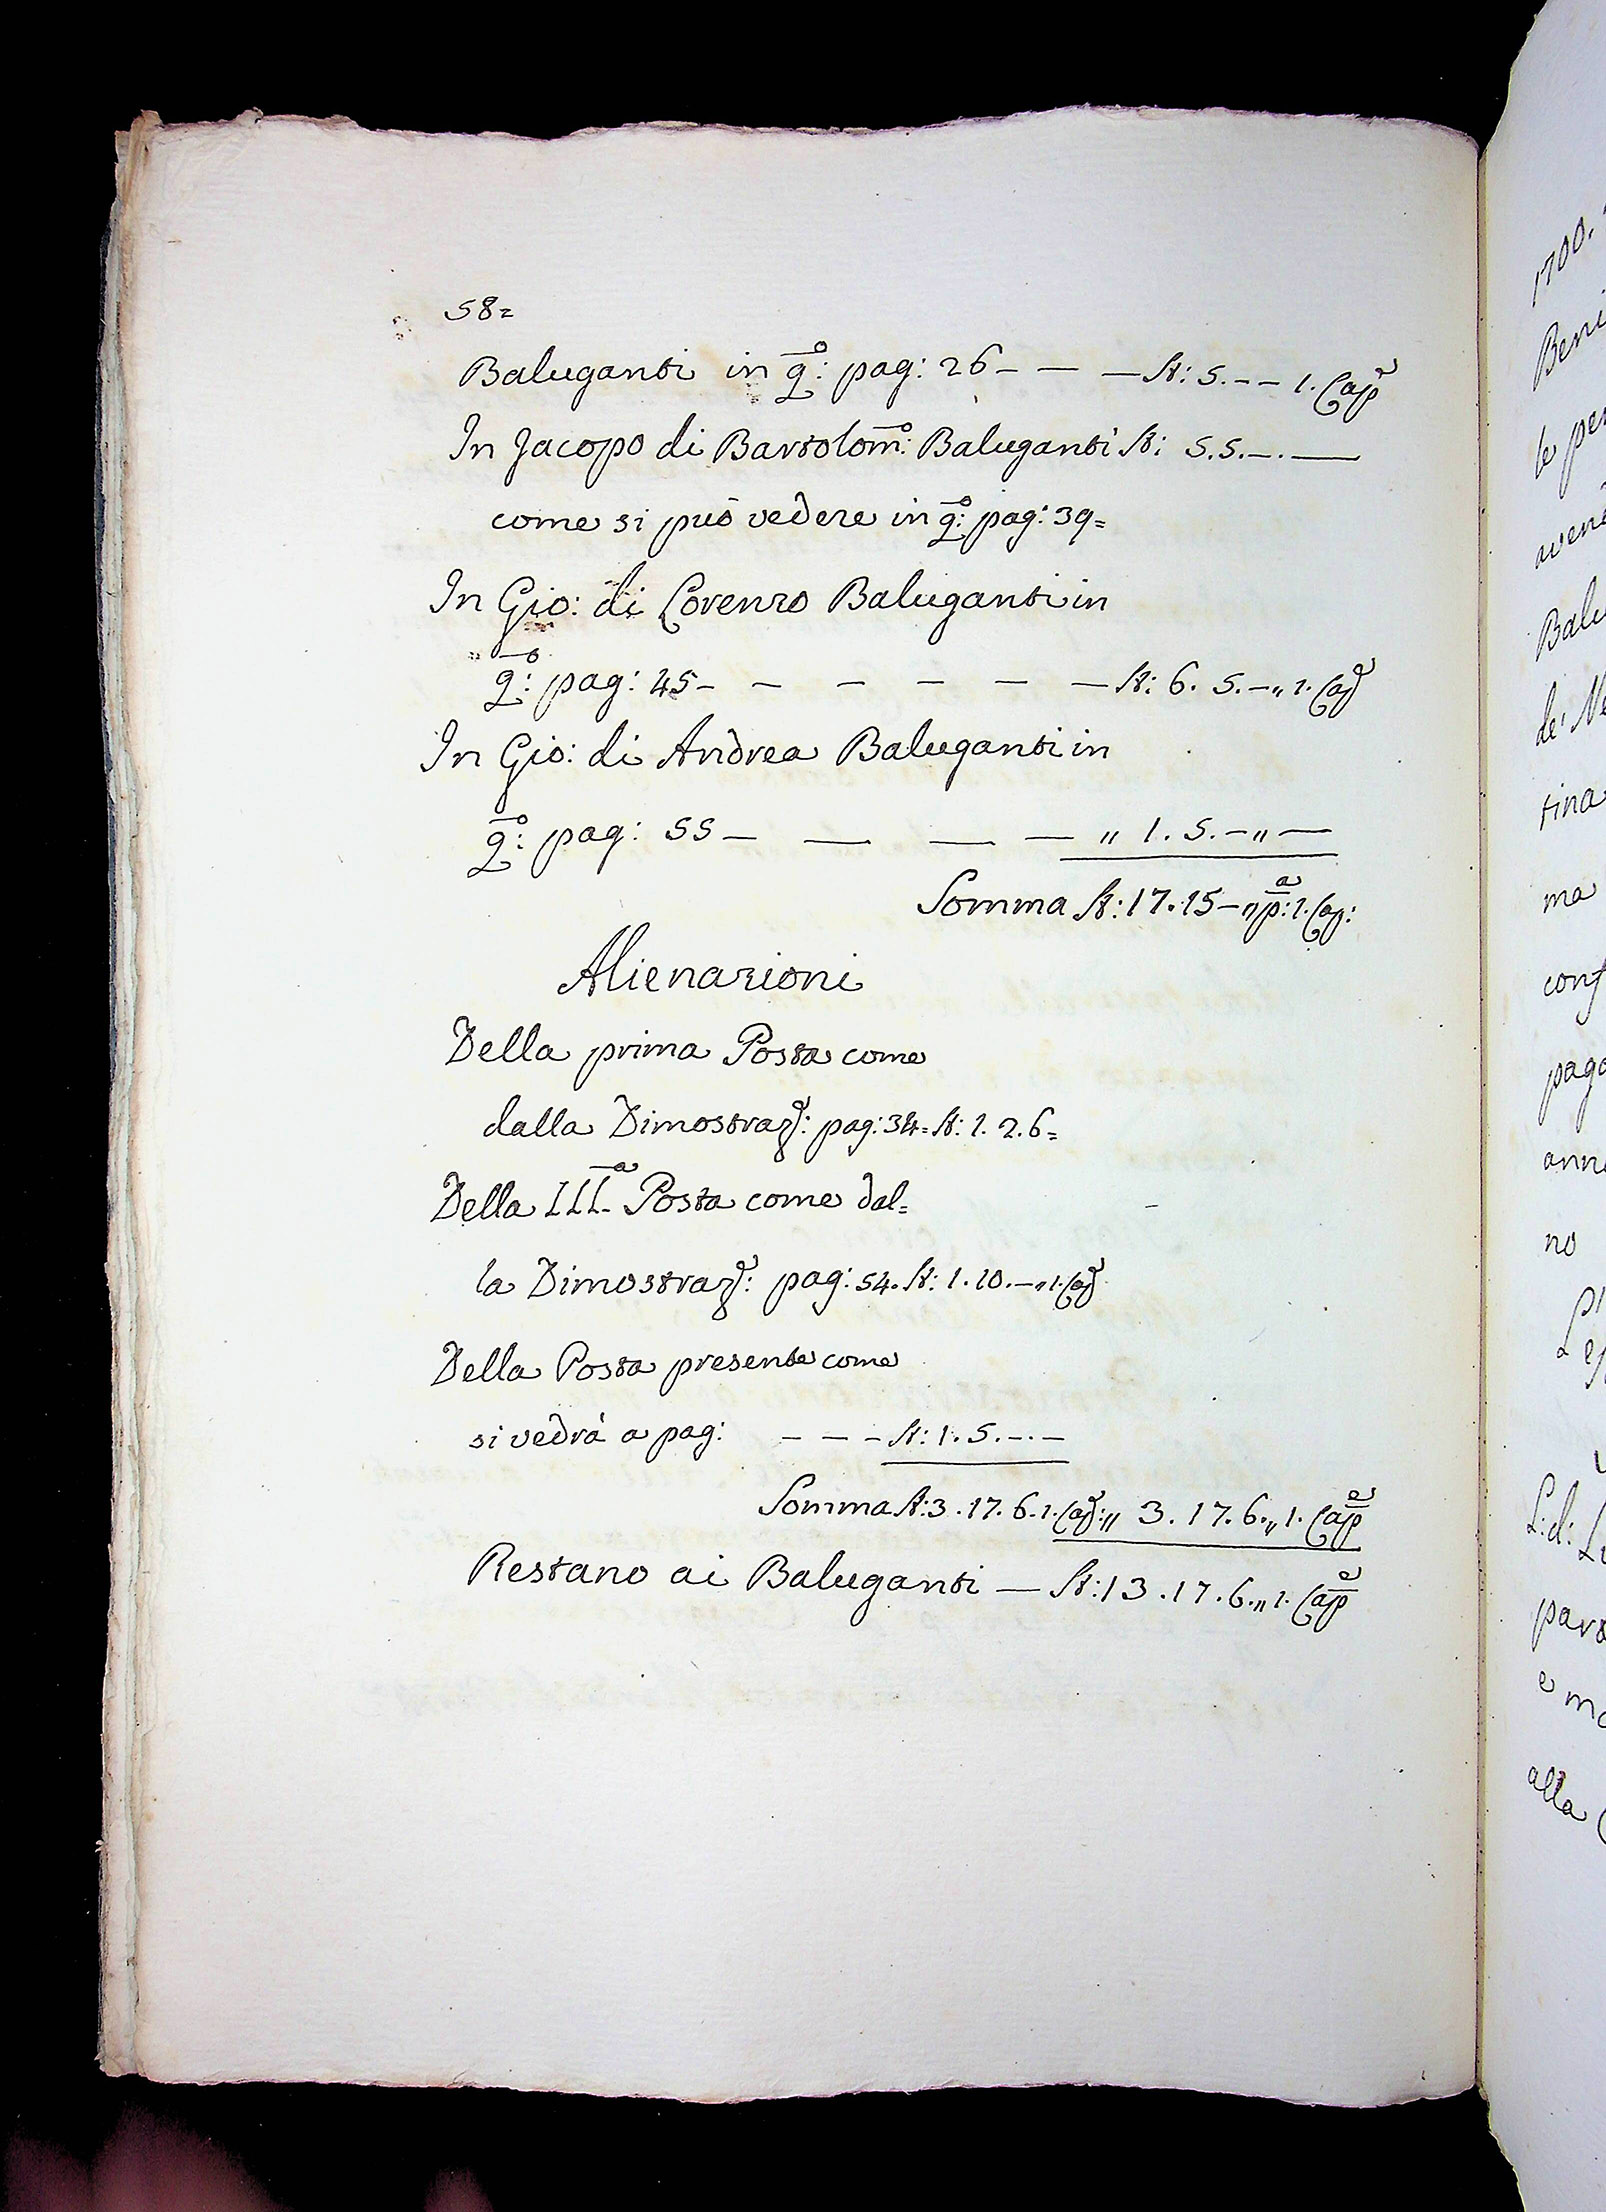 58=
Baluganti in q.º: pag: 26 - — — St: 5. - - 1. Cap.ª
In Jacopo di Bartolom.º: Baluganti St: 5.5.-.—
come si può vedere in q.º: pag: 39=
In Gio: di Lorenzo Baluganti in
q.º: pag: 45 - - - - - — St: 6. 5. -„ 1. Cap.ª
In Gio: di Andrea Baluganti in
q.º: pag: 55 — — — — „ 1. 5. -„ —
Somma St: 17. 15 -„ p.ª: 1. Cap:
Alienazioni
Della prima Posta come
dalla Dimostraz.e: pag: 34= St: 1. 2. 6=
Della III.ª Posta come dal=
la Dimostraz.e: pag: 54. St: 1. 10. -„ 1. Cap.ª
Della Posta presente come
si vedrà a pag: - - - St: 1. 5. -. -
Somma St: 3. 17. 6. 1. Cap.ª: „ 3. 17. 6. „ 1. Cap.ª
Restano ai Baluganti — St: 13. 17. 6. „ 1. Cap.ª
1700.
Beni
le per
Balu
de' Ne
tina
ma
conf
paga
ann
no
L: d: L
part
e mo
alla